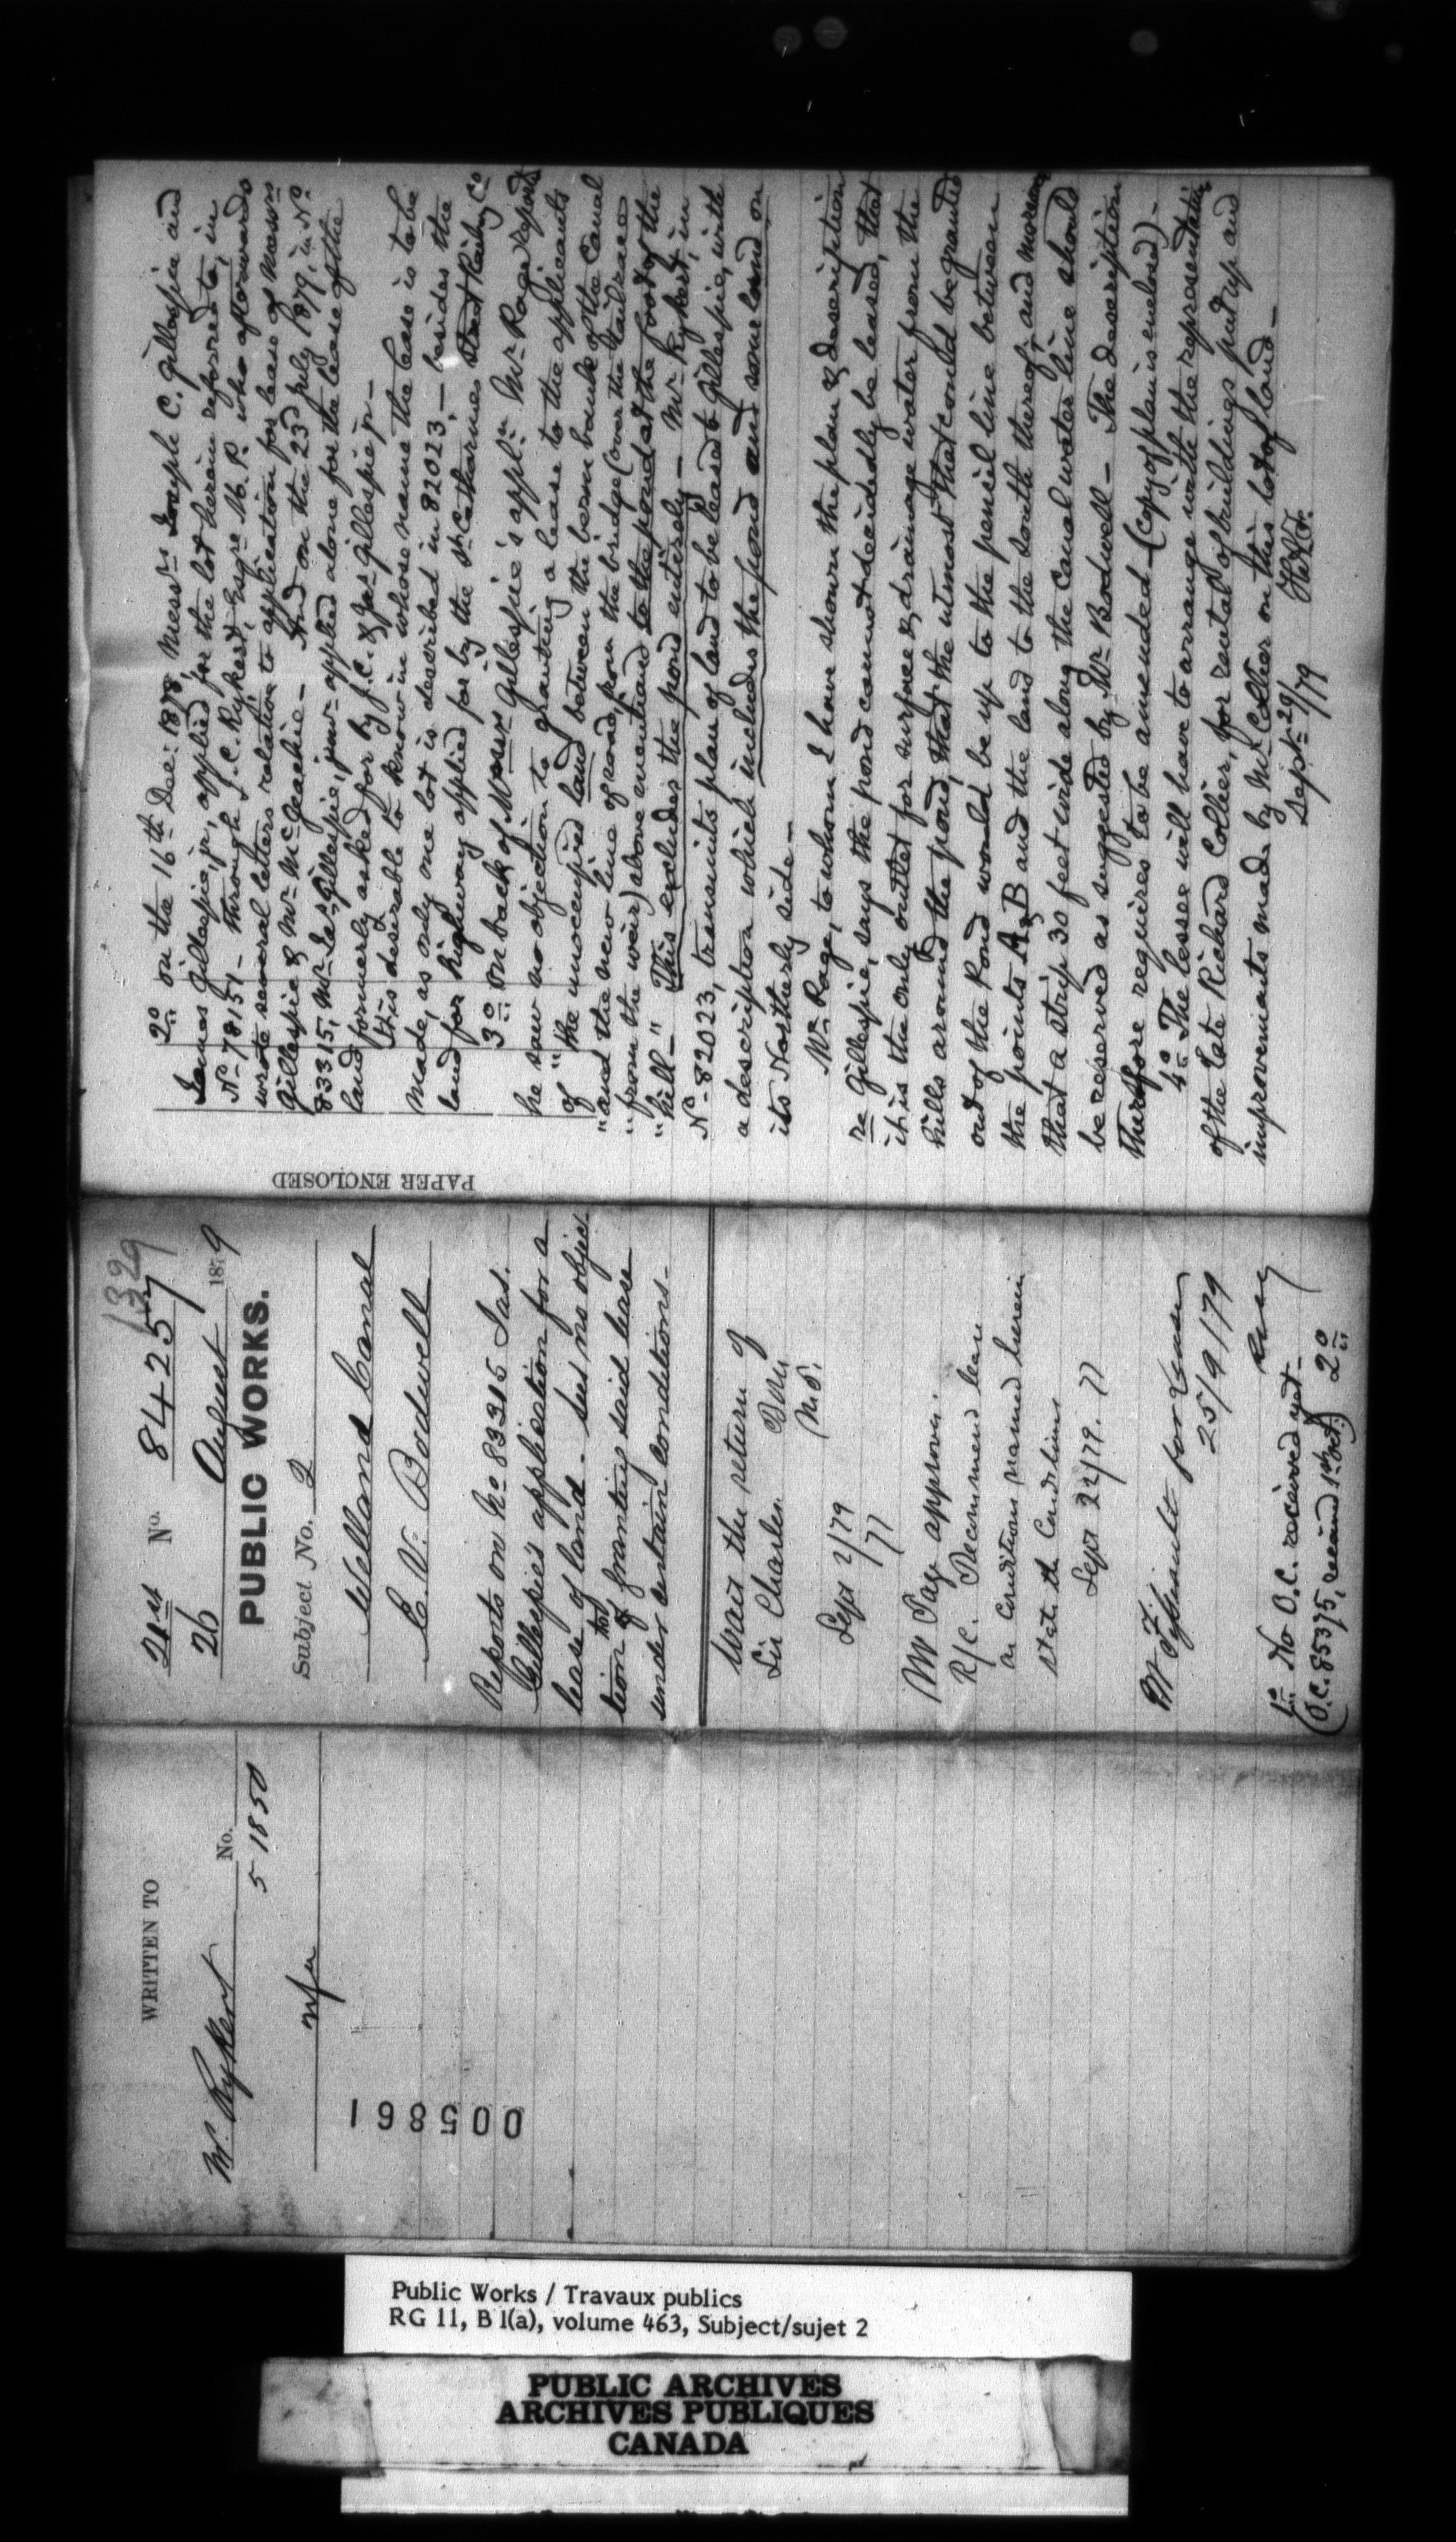 WRITTEN TO
No.
Mr. Rykert
51850
005861
1329
21st No. 84257
26 August 1879
PUBLIC WORKS.
Subject No. 2
Welland Canal
E. V. Bodwell
Reports on No. 83315 Jas.
Gillespie's application for a
lease of land - sees no objec
tion to granting said lease
under certain conditions -
Wait the return of
Sir Charles
Sept 2/79
Mr Page approves.
R/C. Recommend lease
on conditions named herein
state the Conditions
Sept 22/79.
25/9/79
1o No O.C. received yet -
(O.C. 85375, received 1st Oct.) 2o
PAPER ENCLOSED
2o On the 16th Dec: 1878 Messrs Joseph C. Gillespie and
James Gillespie, jr, applied for the lot herein referred to, in
No 78151 - through J. C. Rykert, Esqre M.P. who afterwards
wrote several letters relative to application for lease of Messrs
Gillespie & Mr McGeachie - And on the 23d July 1879, in No
83315, Mr Jas Gillespie, junr applied alone for the lease of the
land formerly asked for by J. C. & Jas Gillespie jr -
It is desirable to know in whose name the lease is to be
made, as only one lot is described in 82023, - besides the
land for highway applied for by the St Catharines Street Railwy Co
3o On back of Messrs Gillespie's appln Mr Page reports
he saw no objection to granting a lease to the applicants
of "the unoccupied land between the berm bank of the Canal
"and the new line of road, from the bridge (over the tailrace
"from the weir) above mentioned to the pond at the foot of the
"hill - " This excludes the pond entirely - Mr Rykert, in
No 82023, transmits plan of land to be leased to Gillespie, with
a description which includes the pond and some land on
its Northerly side -
Mr Page, to whom I have shown the plan & description
re Gillespie, says the pond cannot decidedly be leased, that
it is the only outlet for surface & drainage water from the
hills around the pond, that the utmost that could be granted
out of the Pond would be up to the pencil line between
the points A & B and the land to the south thereof; and moreover
that a strip 30 feet wide along the Canal water line should
be reserved as suggested by Mr Bodwell - The description
therefore requires to be amended - (Copy of plan is enclosed) -
4o The lessee will have to arrange with the representatives
of the late Richard Collier, for rental of buildings put up and
improvements made by Mr Collier on this lot of land -
Sept 29/79
Public Works / Travaux publics
RG 11, B 1(a), volume 463, Subject/sujet 2
PUBLIC ARCHIVES
ARCHIVES PUBLIQUES
CANADA